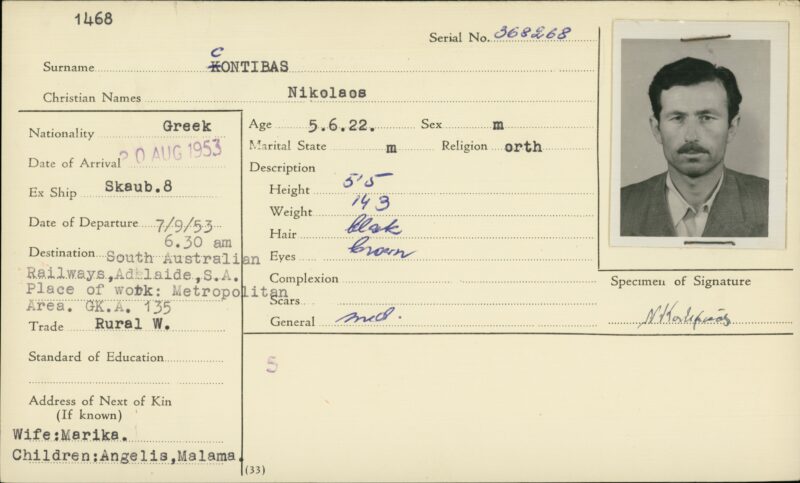 1468
Serial No. 368268
Surname CONTIBAS
Christian Names Nikolaos
Nationality Greek
Date of Arrival 20 AUG 1953
Ex Ship Skaub.8
Date of Departure 7/9/53
6.30 am
Destination South Australian
Railways, Adelaide, S.A.
Place of work: Metropolitan
Area. GK.A. 135
Trade Rural W.
Standard of Education
Address of Next of Kin
(If known)
Wife:Marika.
Children:Angelis,Malama.
Age 5.6.22. Sex m
Marital State m Religion orth
Description
Height 5'5
Weight 143
Hair blak
Eyes brown
Complexion
Scars
General med.
5
(33)
Specimen of Signature